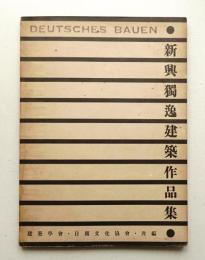 DEUTSCHES BAUEN
新興獨逸建築作品集
建築學會・日獨文化協會・共編